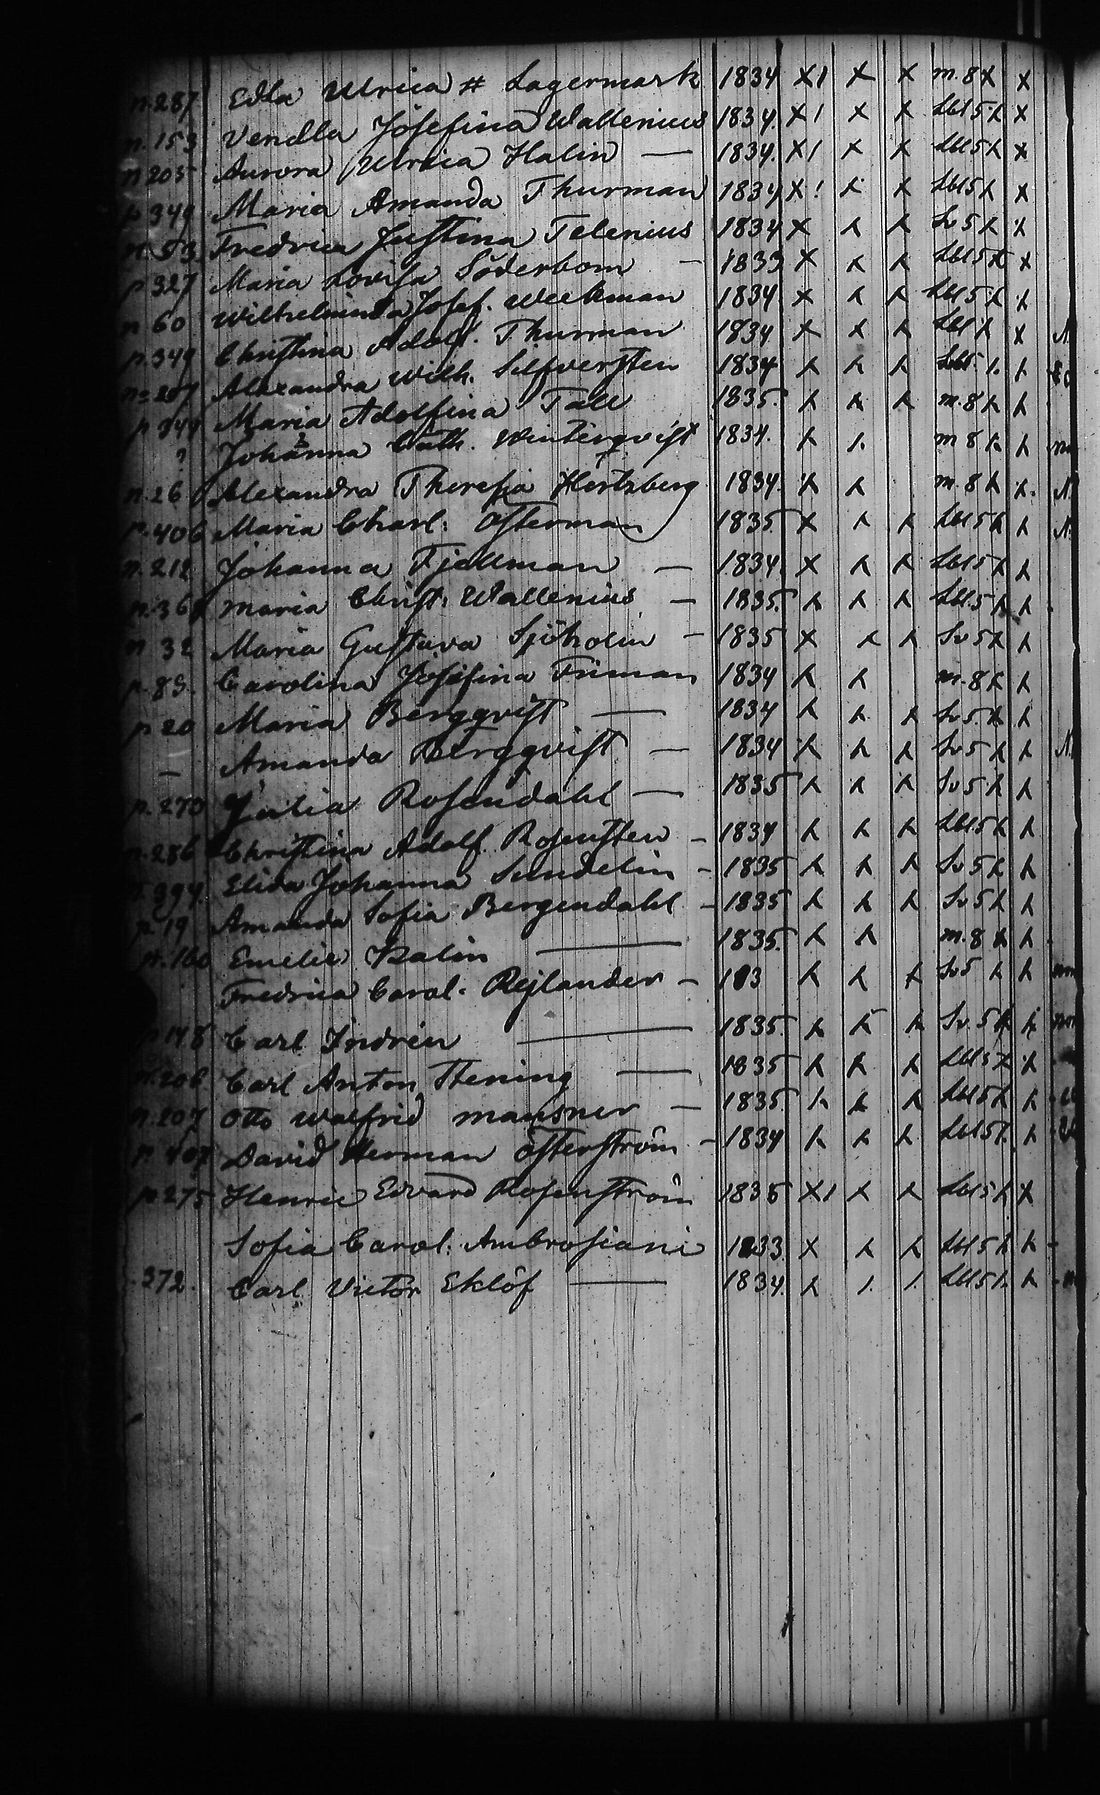 n. 287 Edla Ulrica # Lagermark 1834 X1 X X m. 8 X X
n. 153 Vendla Josefina Wallenius 1834. X1 X X Lbl 5 X X
n 205 Aurora Ulrica Halin — 1834. X1 X X Lbl 5 X X
p 349 Maria Amanda Thurman 1834 X! X X Lbl 5 X X
n. 53 Fredrica Justina Telenius 1834 X X X Sv 5 X X
p 327 Maria Lovisa Söderbom — 1833 X X X Lbl 5 X X
n 60 Wilhelmina Josef. Weekman 1834 X X X Lbl 5 X X
p. 349 Christina Adolf. Thurman 1834 X X X Lbl X X N.
no 207 Alexandra Wilh. Silfversten 1834 X X X Lbl 5. X X
p 344 Maria Adolfina Tall 1835. X X X m. 8 X X
? Johanna Cath. Winterqvist 1834. X X m 8 X X
n. 26 Alexandra Theresia Hertzberg 1834. X X m. 8 X X. N.
p. 406 Maria Charl: Österman 1835 X X X Lbl 5 X X N.
n. 212 Johanna Fjellman — 1834. X X X Lbl 5 X X
p. 36 Maria Christ: Wallenius — 1835. X X X Lbl 5 X X
n 32 Maria Gustava Sjöholm — 1835 X X X Sv 5 X X
p. 85. Carolina Josefina Friman 1834 X X m. 8 X X
p 20 Maria Bergqvist — 1834 X X X Sv 5 X X
— Amanda Bergqvist — 1834 X X X Sv 5 X X N
p. 270 Julia Rosendahl — 1835 X X X Sv 5 X X
n. 286 Christina Adolf. Rosensten — 1834 X X X Lbl 5 X X
p. 394. Elida Johanna Sundelin — 1835 X X X Sv 5 X X
p 19 Amanda Sofia Bergendahl — 1835 X X X Sv 5 X X
n. 160 Emelie Kalin — 1835. X X m. 8 X X
Fredrica Carol. Rejlander — 183 X X X Sv 5 X X
p 148 Carl Indrén — 1835. X X X Sv. 5 X X
n. 206 Carl Anton Thening — 1835 X X X Lbl 5 X X
n. 207 Otto Walfrid Mansner — 1835 X X X Lbl 5 X X
p. 407 David Herman Österström — 1834 X X X Lbl 5 X X
p 275 Henric Edvard Rosenström 1835 X1 X X Lbl 5 X X
Sofia Carol. Ambrosiani 1833. X X X Lbl 5 X X
. 372. Carl Victor Eklöf — 1834. X / / Lbl 5 X X